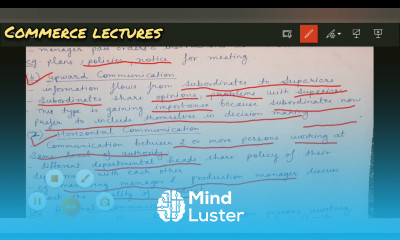 COMMERCE LECTURES
manager pass orders
sg plans, policies, notice for meeting
(b) Upward Communication
information flows from subordinates to superiors
Subordinates share opinions, problems with superiors
This type is gaining importance because subordinates now
prefer to include themselves in decision making
(2) Horizontal Communication
Communication between 2 or more persons working at
Same level of authority
different departmental heads share policy of their
with each other
marketing manager & production manager discuss
quality of
Mind
Luster
persons working